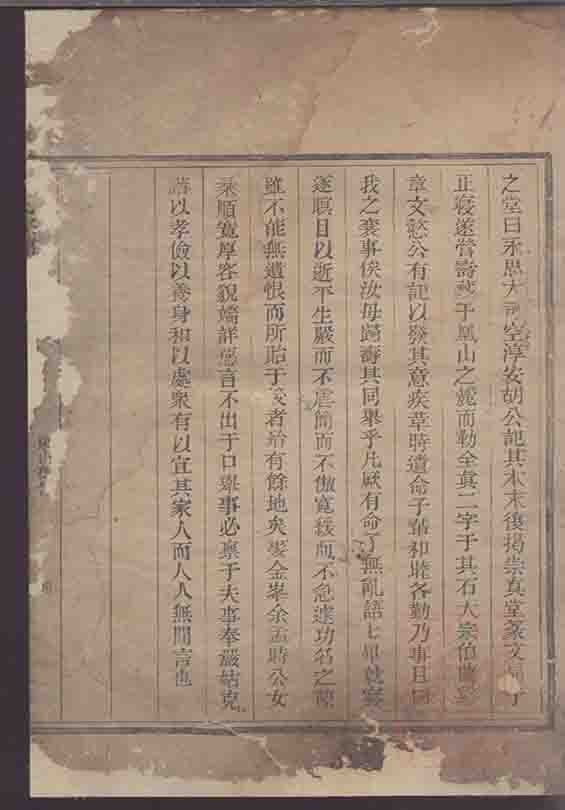 之堂曰永思大司空淳安胡公記其本末復揭崇真堂篆文于
正寢遂營壽藏于鳳山之麓而勒全真二字于其石大宗伯
章文懿公有記以發其意疾革時遺命子輩和睦各勤乃事且曰
我之襄事俟汝母歸壽其同舉乎凡厥有命了無亂語七日就寢
遂瞑目以逝平生嚴而不虐簡而不傲寬緩而不怠遽功名之際
雖不能無遺恨而所貽于後者綽有餘地矣娶金華余孟時公女
柔順寬厚容貌端詳惡言不出于口舉事必稟于夫事奉嚴姑克
諧以孝儉以養身和以處衆有以宜其家人而人人無間言也